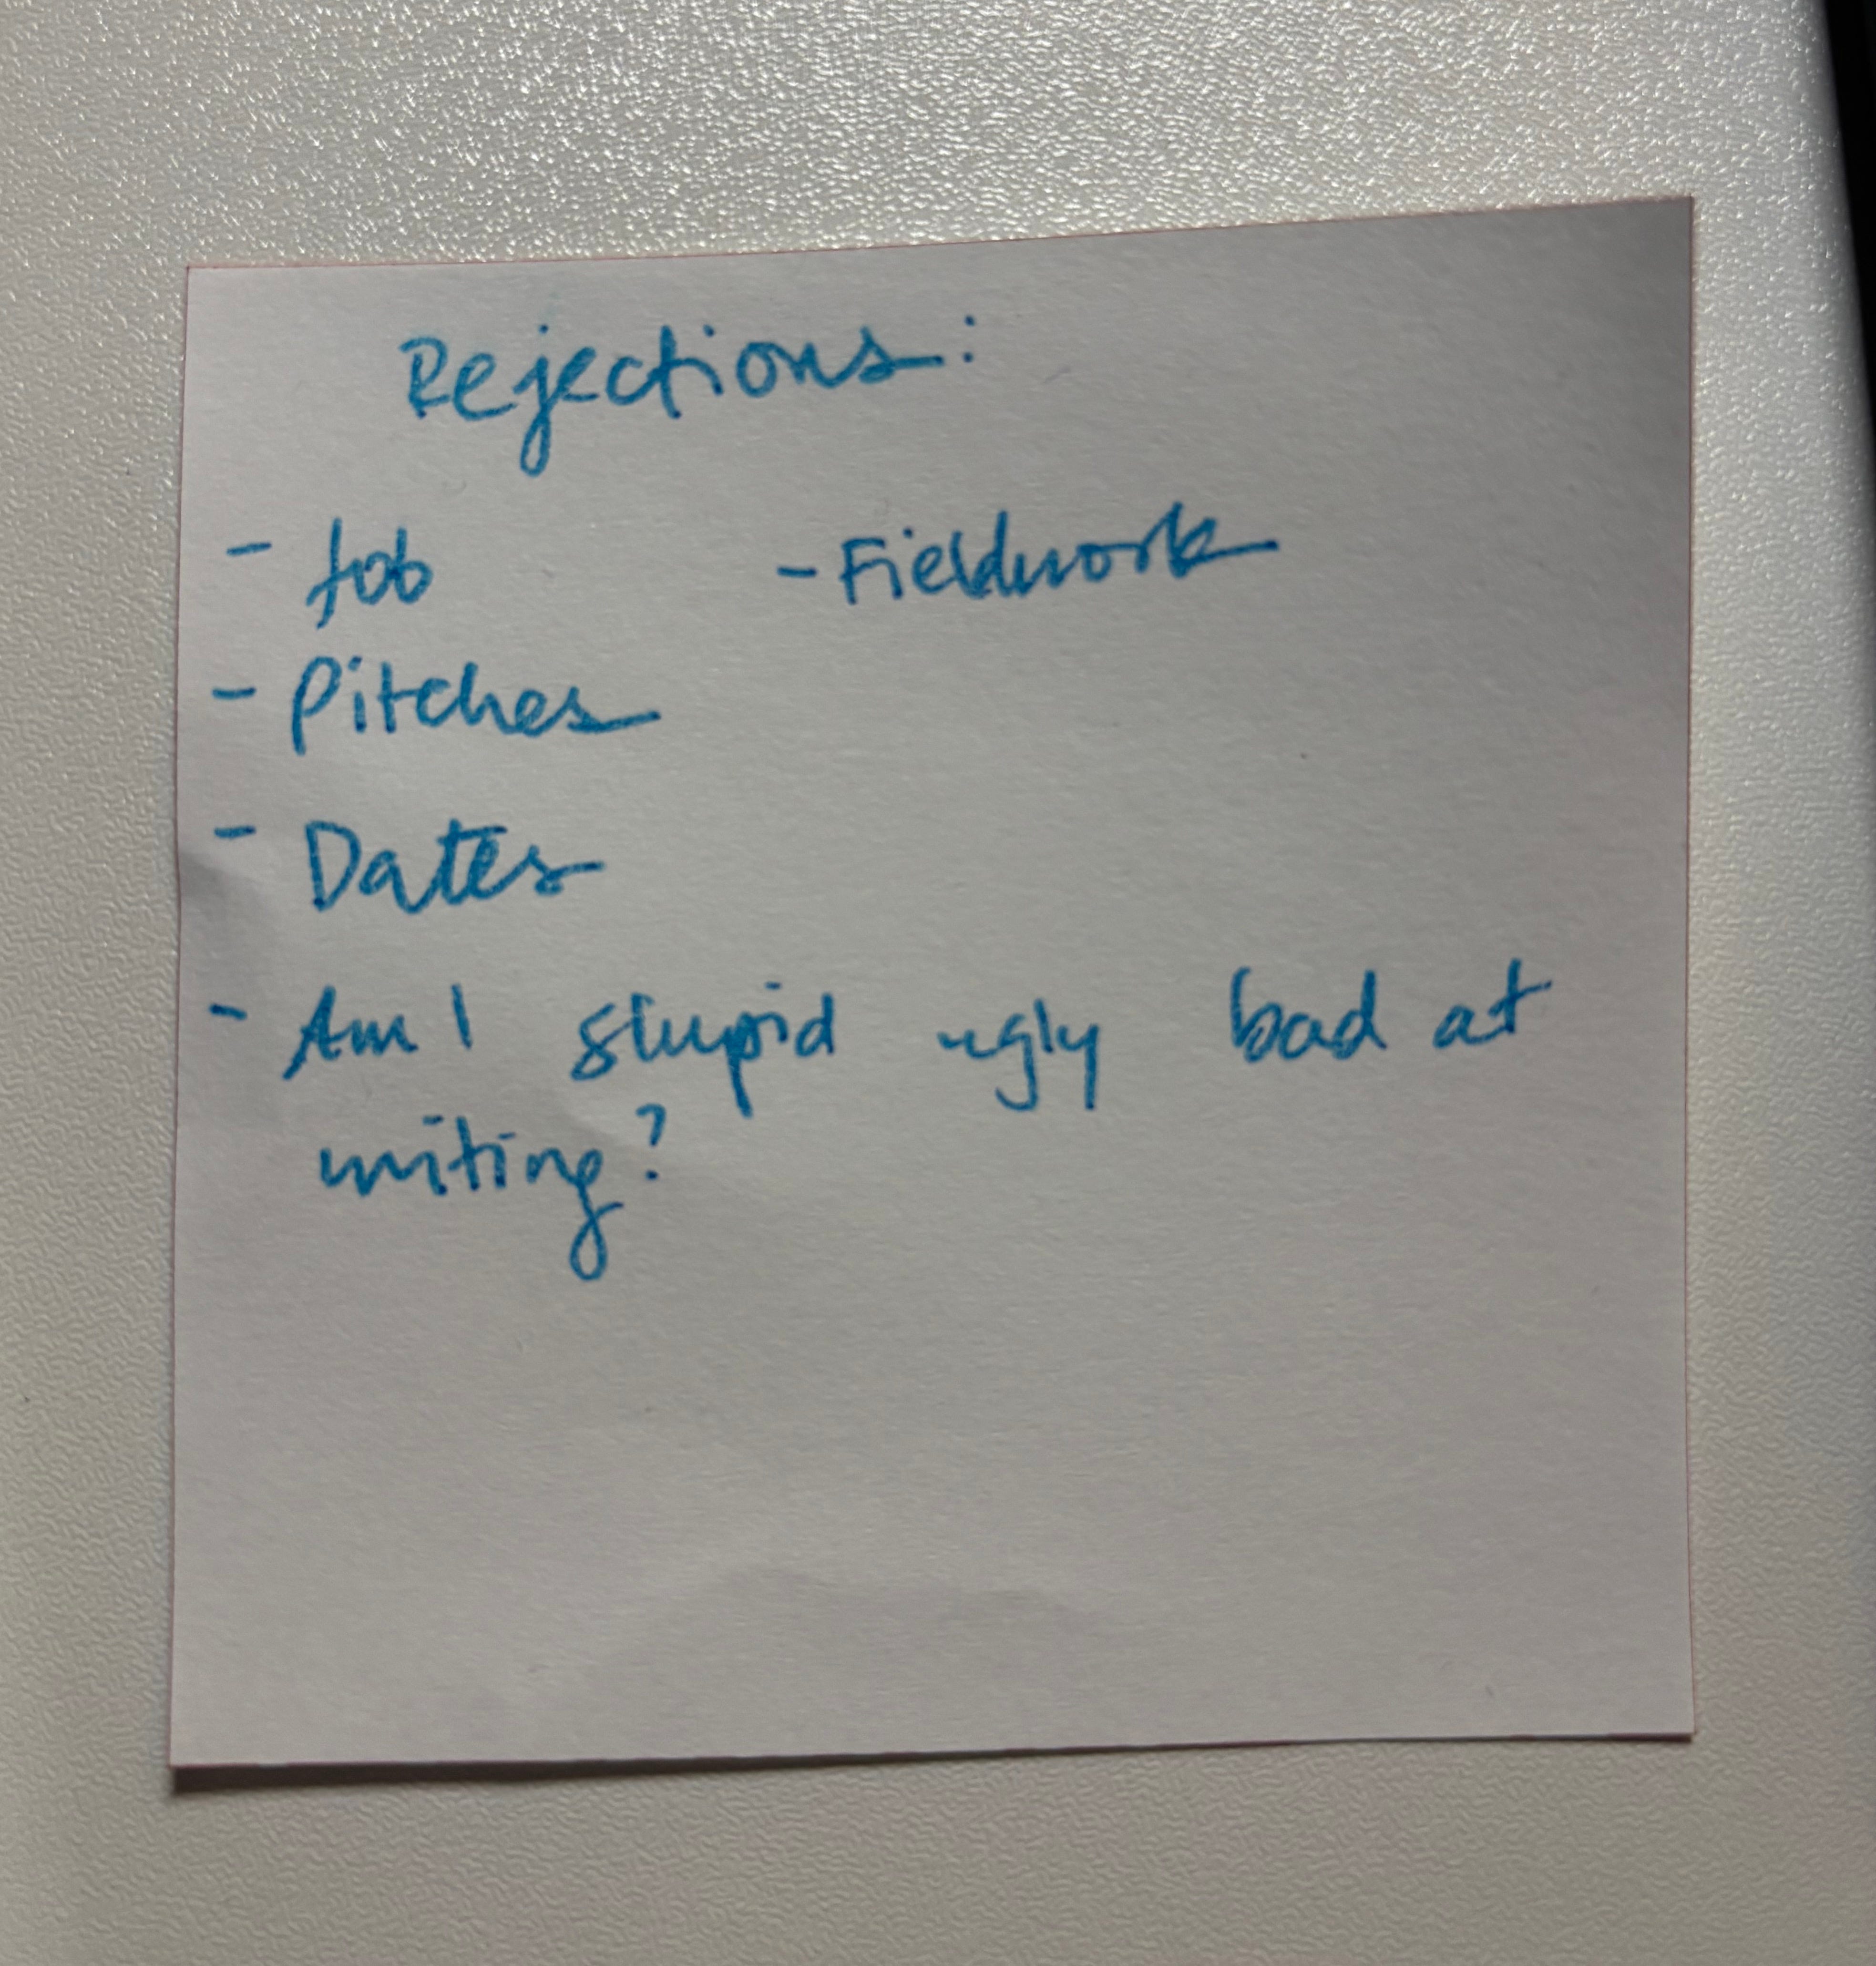 Rejections:
- Job - Fieldwork
- Pitches
- Dates
- Am I stupid ugly bad at
writing?